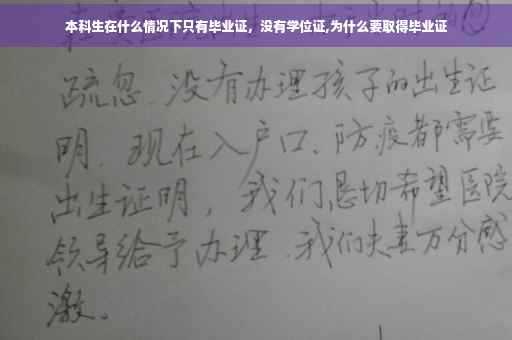 本科生在什么情况下只有毕业证，没有学位证,为什么要取得毕业证
疏忽、没有办理孩子的出生证
明、现在入户口、防疫都需要
出生证明，我们恳切希望医院
领导给予办理、我们夫妻万分感
激。